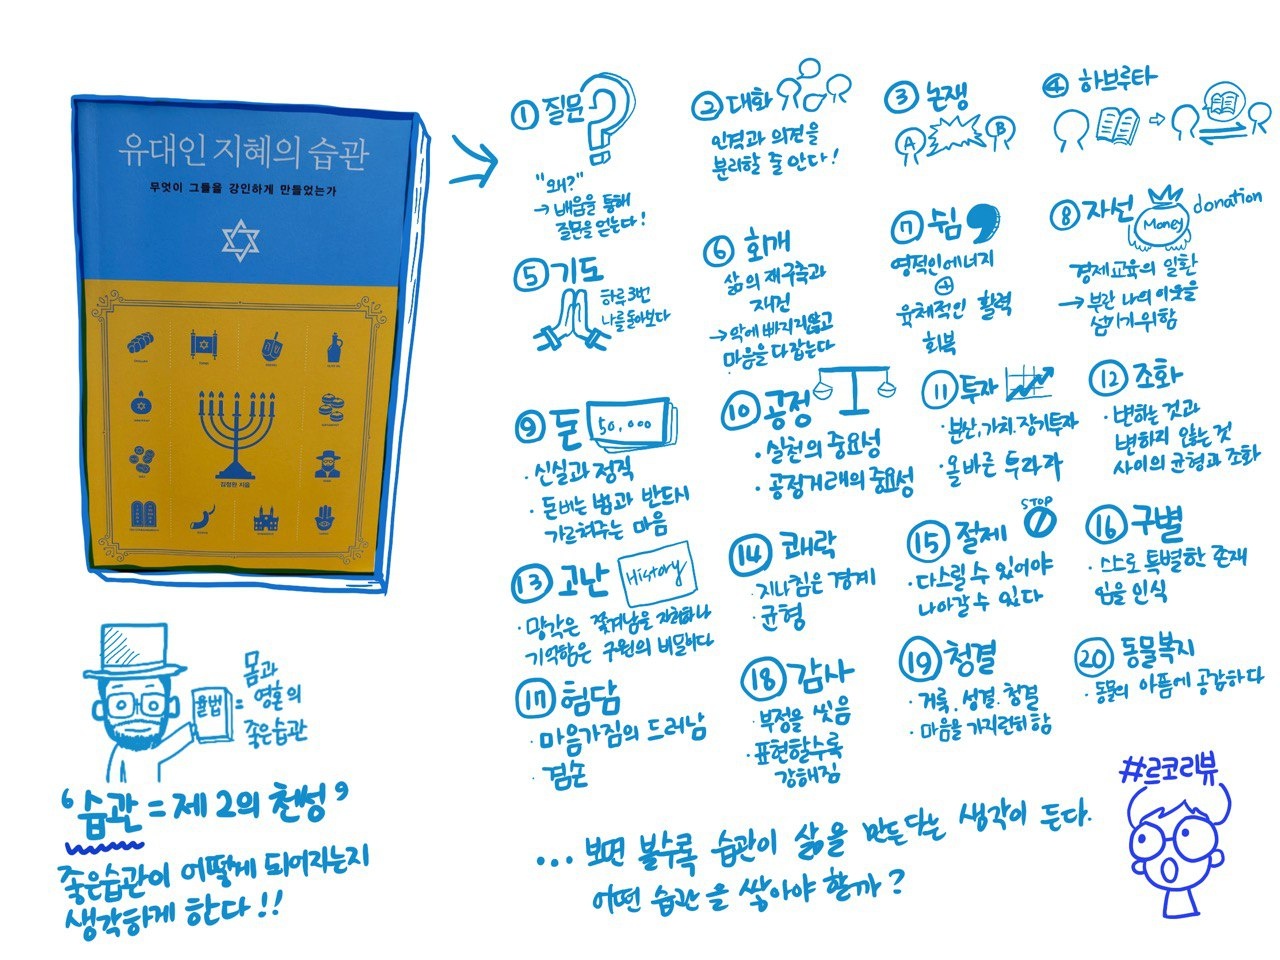 유대인 지혜의 습관
무엇이 그들을 강인하게 만들었는가
김정완 지음
율법 = 몸과
영혼의
좋은습관
'습관 = 제 2의 천성'
좋은습관이 어떻게 되어지는지
생각하게 한다!!
① 질문
"왜?"
→ 배움을 통해
질문을 얻는다!
② 대화
인격과 의견을
분리할 줄 안다!
③ 논쟁
A B
④ 하브루타
⑤ 기도
하루 3번
나를 돌아보다
⑥ 회개
삶의 재구축과
재건
→ 악에 빠지지않고
마음을 다잡는다
⑦ 쉼
영적인에너지
+
육체적인 활력
회복
⑧ 자선
Money
donation
경제교육의 일환
→ 부란 나의 이웃을
섬기기 위함
⑨ 돈
50,000
· 신실과 정직
· 돈버는 법과 반드시
가르쳐주는 마음
⑩ 공정
· 실천의 중요성
· 공정거래의 중요성
⑪ 투자
· 분산, 가치, 장기투자
· 올바른 투라라
⑫ 조화
· 변하는 것과
변하지 않는 것
사이의 균형과 조화
⑬ 고난
History
· 망각은 쫓겨남을 초래하나
기억함은 구원의 비밀이다
⑭ 쾌락
· 지나침은 경계
· 균형
⑮ 절제
STOP
· 다스릴 수 있어야
나아갈 수 있다
⑯ 구별
· 스스로 특별한 존재
임을 인식
⑰ 험담
· 마음가짐의 드러남
· 겸손
⑱ 감사
· 부정을 씻음
· 표현할수록
강해짐
⑲ 청결
· 거룩, 성결, 청결
· 마음을 가지런히 함
⑳ 동물복지
· 동물의 아픔에 공감하다
#르코리뷰
... 보면 볼수록 습관이 삶을 만든다는 생각이 든다.
어떤 습관을 쌓아야 할까?